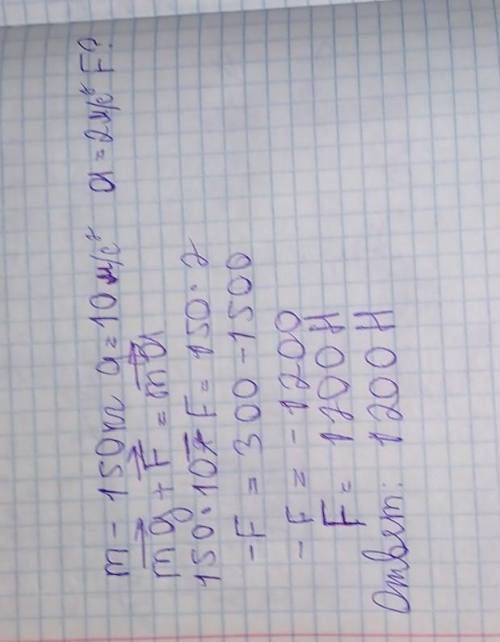 m - 150 кг g = 10 м/с² a = 2 м/с² F?
mg + F = ma
150·10 - F = 150·2
-F = 300 - 1500
-F = -1200
F = 1200 Н
Ответ: 1200 Н